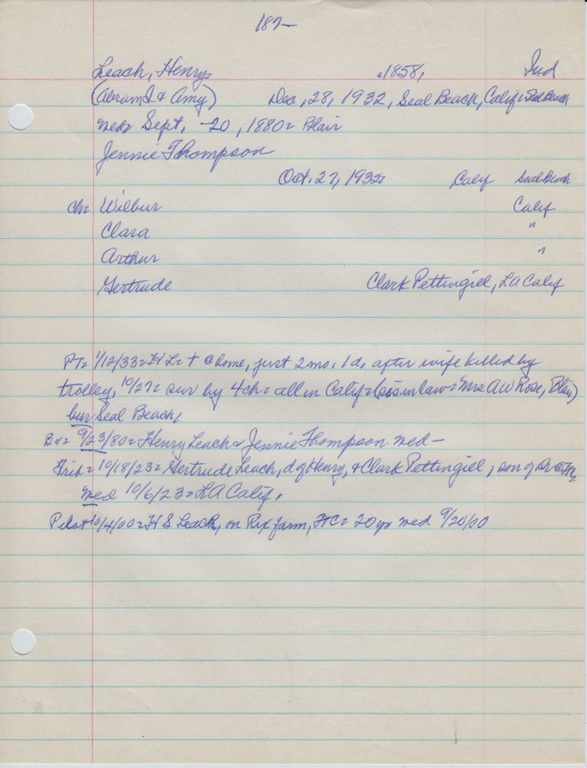 187-
Leach, Henry= 1858, Ind
(Abram I & Amy) Dec, 28, 1932, Seal Beach, Calif= Seal Beach
med= Sept, -20, 1880= Blair
Jennie Thompson
Oct. 27, 1932= Calif Seal Beach
Ch= Wilbur Calif
Clara "
Arthur "
Gertrude Clark Pettingiel, LA Calif
PT= 1/12/33= H L= + @ home, just 2 mo. 1 d, after wife killed by
trolley, 10/27= sur by 4 ch= all in Calif= (sis in law= Mrs A W Rose, Blair)
bur Seal Beach,
9/23/80= Henry Leach & Jennie Thompson med-
10/18/23= Gertrude Leach, d of Henry, & Clark Pettingiel, son of Dr
med 10/6/23= LA Calif.
Pilot 10/4/00= H S Leach, on Rix farm, FtC= 20 yr med 9/20/00